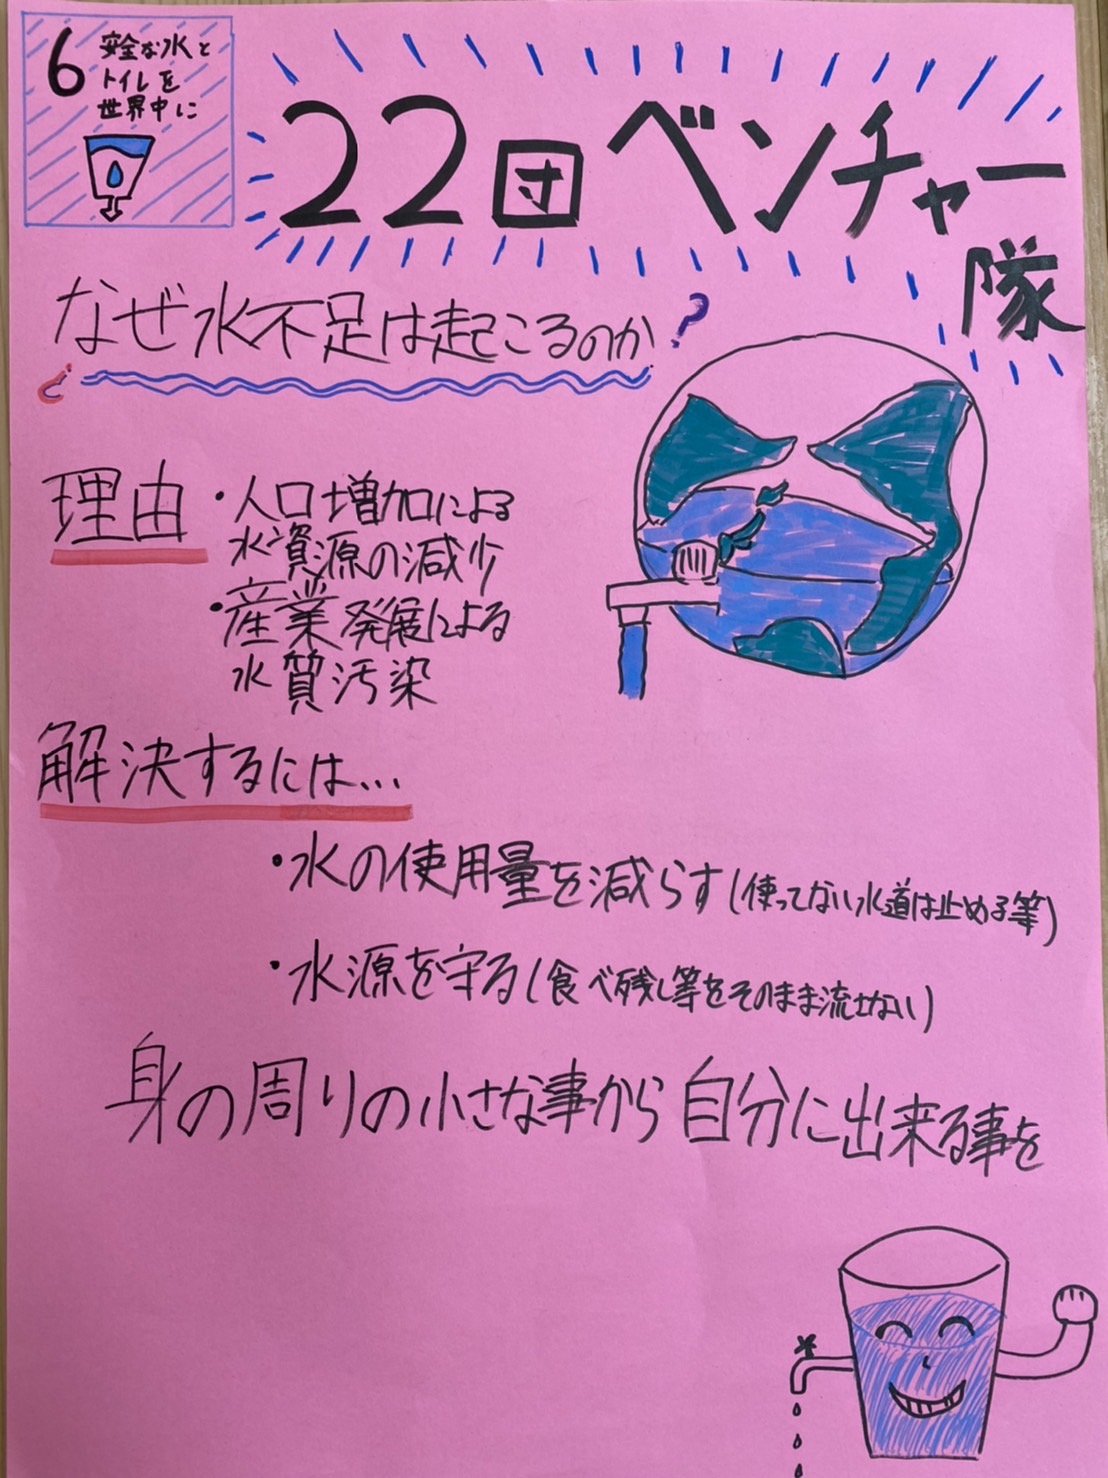 6 安全な水と
トイレを
世界中に
22団ベンチャー
隊
なぜ水不足は起こるのか?
理由
・人口増加による
水資源の減少
・産業発展による
水質汚染
解決するには…
・水の使用量を減らす(使ってない水道は止める等)
・水源を守る(食べ残し等をそのまま流さない)
身の周りの小さな事から自分に出来る事を